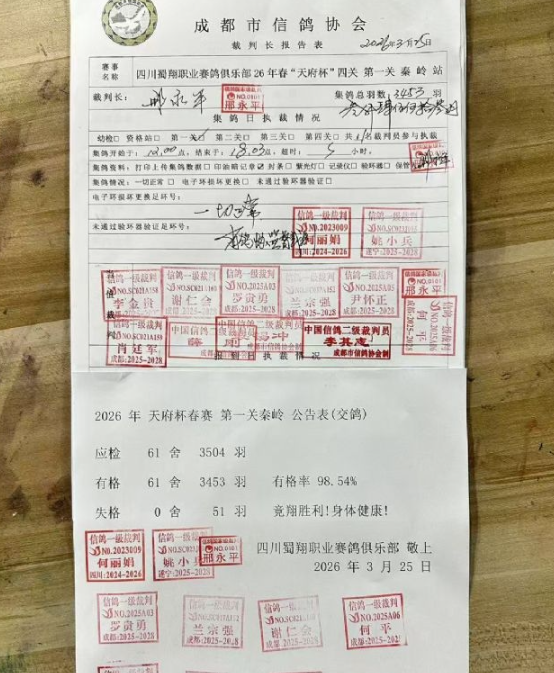 成都市信鸽协会
裁判长报告表 2026年3月25日
赛事名称 四川蜀翔职业赛鸽俱乐部26年春“天府杯”四关 第一关 秦岭 站
裁判长: 邢永平 NO.0101 邢永平 集鸽总羽数: 3453 羽
集鸽日执裁情况
幼检□ 资格站□ 第一关☑ 第二关□ 第三关□ 第四关□ 共 名裁判员参与执裁
集鸽开始于: 12:00点, 结束于: 18:03点, 超时: 5 小时,
集鸽资料: 打印上传集鸽数据□ 印油暗记章☑ 封条□ 紫光灯□ 记录仪□ 验环器□ 保管
集鸽情况: 一切正常 □ 电子环损坏更换□ 未通过验环器验证□
电子环损坏更换足环号:
一切正常
未通过验环器验证足环号:
信鸽一级裁判 NO.2023009 何丽娟 四川:2024-2026
信鸽一级裁判 姚小兵 遂宁:2025-2028
信鸽一级裁判 李金贵
信鸽一级裁判 谢仁会 成都:2025-2028
信鸽一级裁判 NO.2025A03 罗贵勇 成都:2025-2028
信鸽一级裁判 兰宗强 成都:2025-2028
信鸽一级裁判 尹怀正 成都:2025-2028
邢永平
信鸽一级裁判 何平 成都:2025-2028
信鸽一级裁判 NO.SC021A159 肖廷军 成都:2025-2028
中国信鸽二级裁判员 成都市信鸽协会制
中国信鸽二级裁判员 李其志 成都市信鸽协会制
报到日执裁情况
2026 年 天府杯春赛 第一关秦岭 公告表(交鸽)
应检 61 舍 3504 羽
有格 61 舍 3453 羽 有格率 98.54%
失格 0 舍 51 羽 竞翔胜利!身体健康!
信鸽一级裁判 NO.2023009 何丽娟 四川:2024-2026
信鸽一级裁判 姚小兵 遂宁:2025-2028
NO.0101 邢永平
四川蜀翔职业赛鸽俱乐部 敬上
2026 年 3 月 25 日
信鸽一级裁判 NO.2025A03 罗贵勇 成都:2025-2028
信鸽一级裁判 兰宗强 成都:2025-2028
信鸽一级裁判 谢仁会 成都:2025-2028
信鸽一级裁判 NO.2025A06 何平 成都:2025-202
信鸽一级裁判